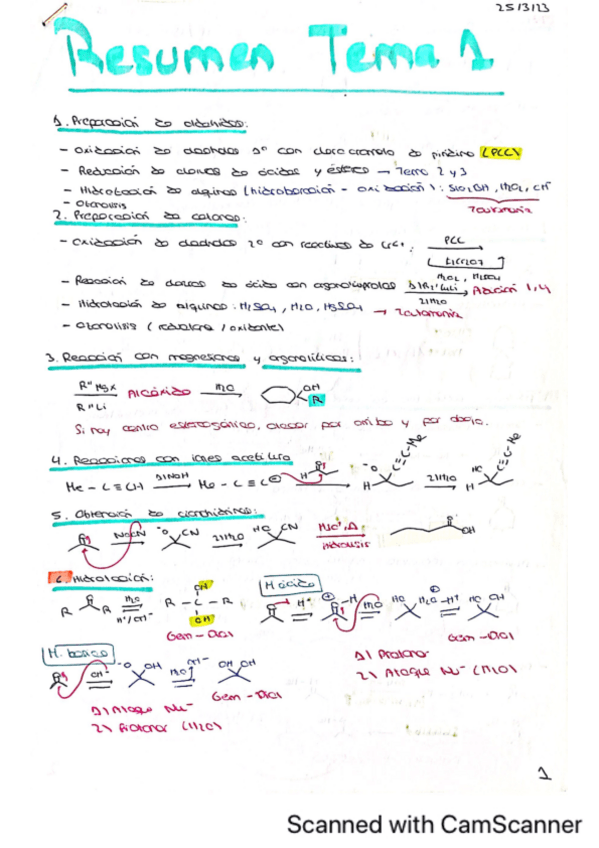 25/3/23
Resumen Tema 1
1. Preparación de aldehidos:
- Oxidación de alcoholes 1º con clorocromato de piridina (PCC)
- Reducción de cloruros de ácidos y ésteres → Tema 2 y 3
- Hidratación de alquinos (hidroboración - oxidación):
- Ozonolisis
Tautomería
2. Preparación de cetonas:
- Oxidación de alcoholes 2º con reactivos de Cr6+: PCC
K2Cr2O7
H2O2, H2SO4
- Reacción de cloruros de ácido con organocupratos 1) R2'CuLi Adición 1,4
2) H2O
- Hidratación de alquinos: H2SO4, H2O, HgSO4 → Tautomería
- Ozonolisis (reductora / oxidante)
3. Reacción con magnesianos y organolíticos:
R"MgX Alcóxido H2O OH
R"Li R
Si hay centro estereogénico, atacar por arriba y por abajo.
4. Reacciones con iones acetiluro
Me-C≡CH 1) NaH Me-C≡C⊖ H -O C≡C-Me H 2) H2O HO C≡C-Me H
5. Obtención de cianohidrinas:
NaCN -O CN 2) H2O HO CN H3O+, Δ OH
Hidrólisis
6. Hidratación:
R R H2O H+/OH- R-C-R OH OH
Gem-Diol
H. ácida
H+ H H2O HO H2O -H+ HO OH
Gem-Diol
1) Protonar
2) Ataque Nu- (H2O)
H. básica
OH- -O OH H2O OH- OH OH
Gem-Diol
1) Ataque Nu-
2) Protonar (H2O)
1
Scanned with CamScanner